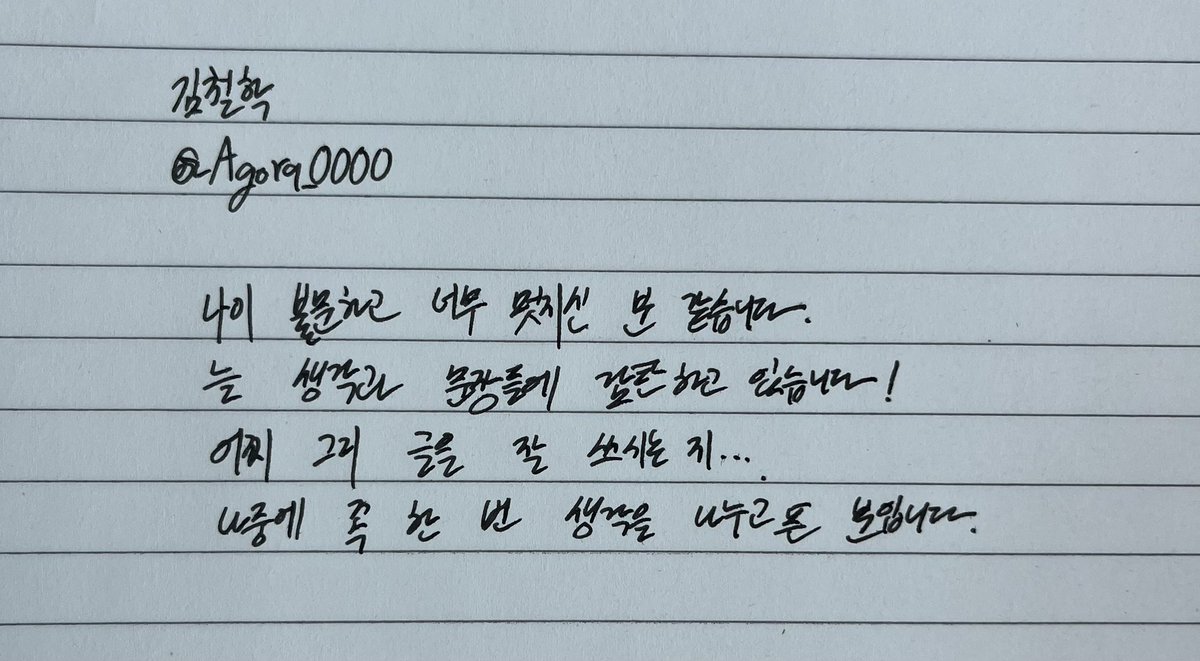 김철학
@Agora_0000
나이 불문하고 너무 멋지신 분 같습니다.
늘 생각과 문장들에 감탄하고 있습니다!
어찌 그리 글을 잘 쓰시는지...
나중에 꼭 한 번 생각을 나누고픈 분입니다.